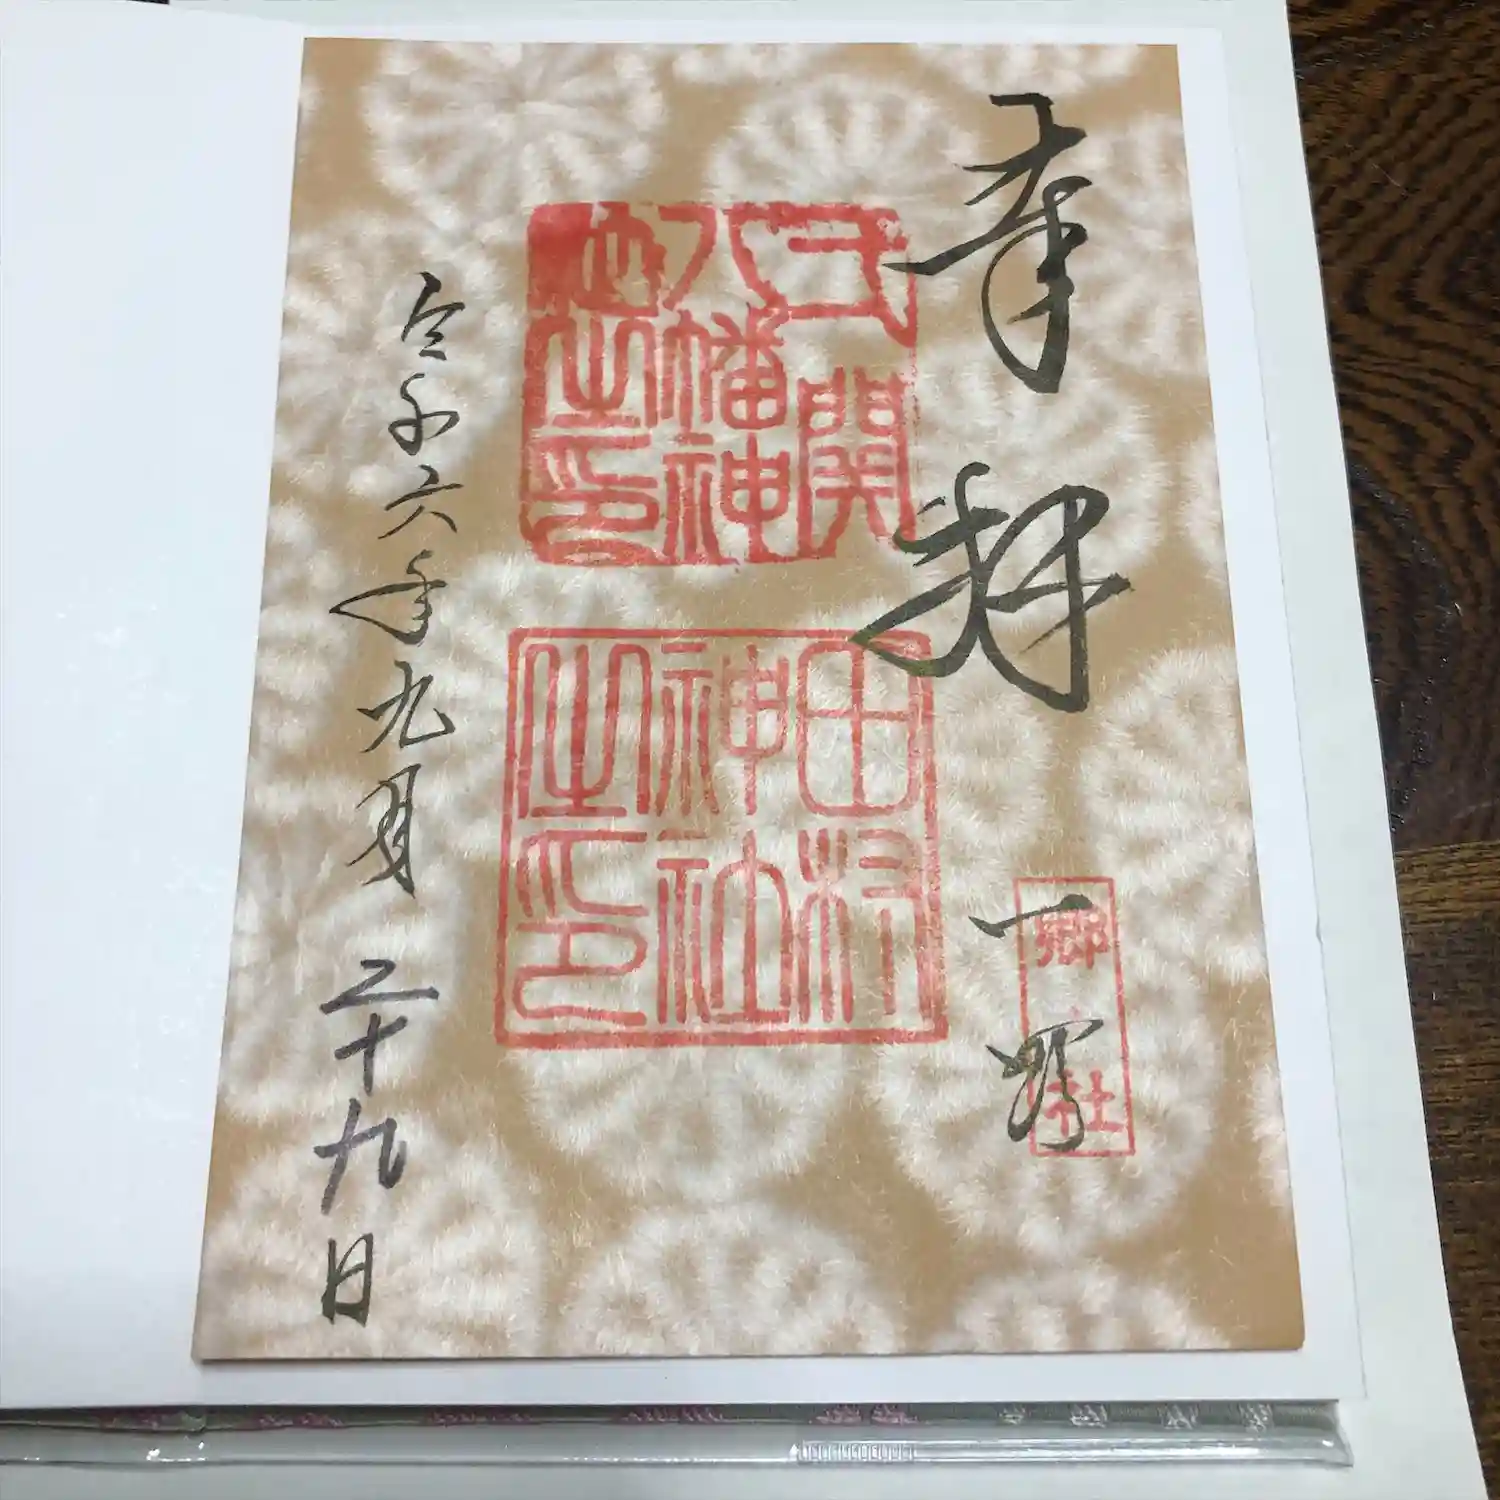 奉拝
一関
郷社
弌関
八幡神
社之印
田村
神社
之印
令和六年九月二十九日